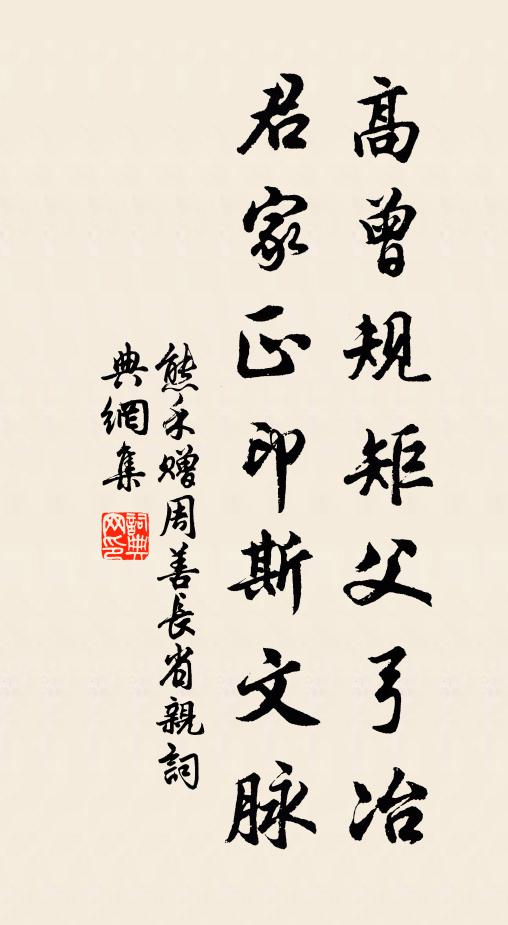 高曾規矩父弓冶
君家正印斯文脉
熊禾贈周善長省親詞
典網集
詞典
网印